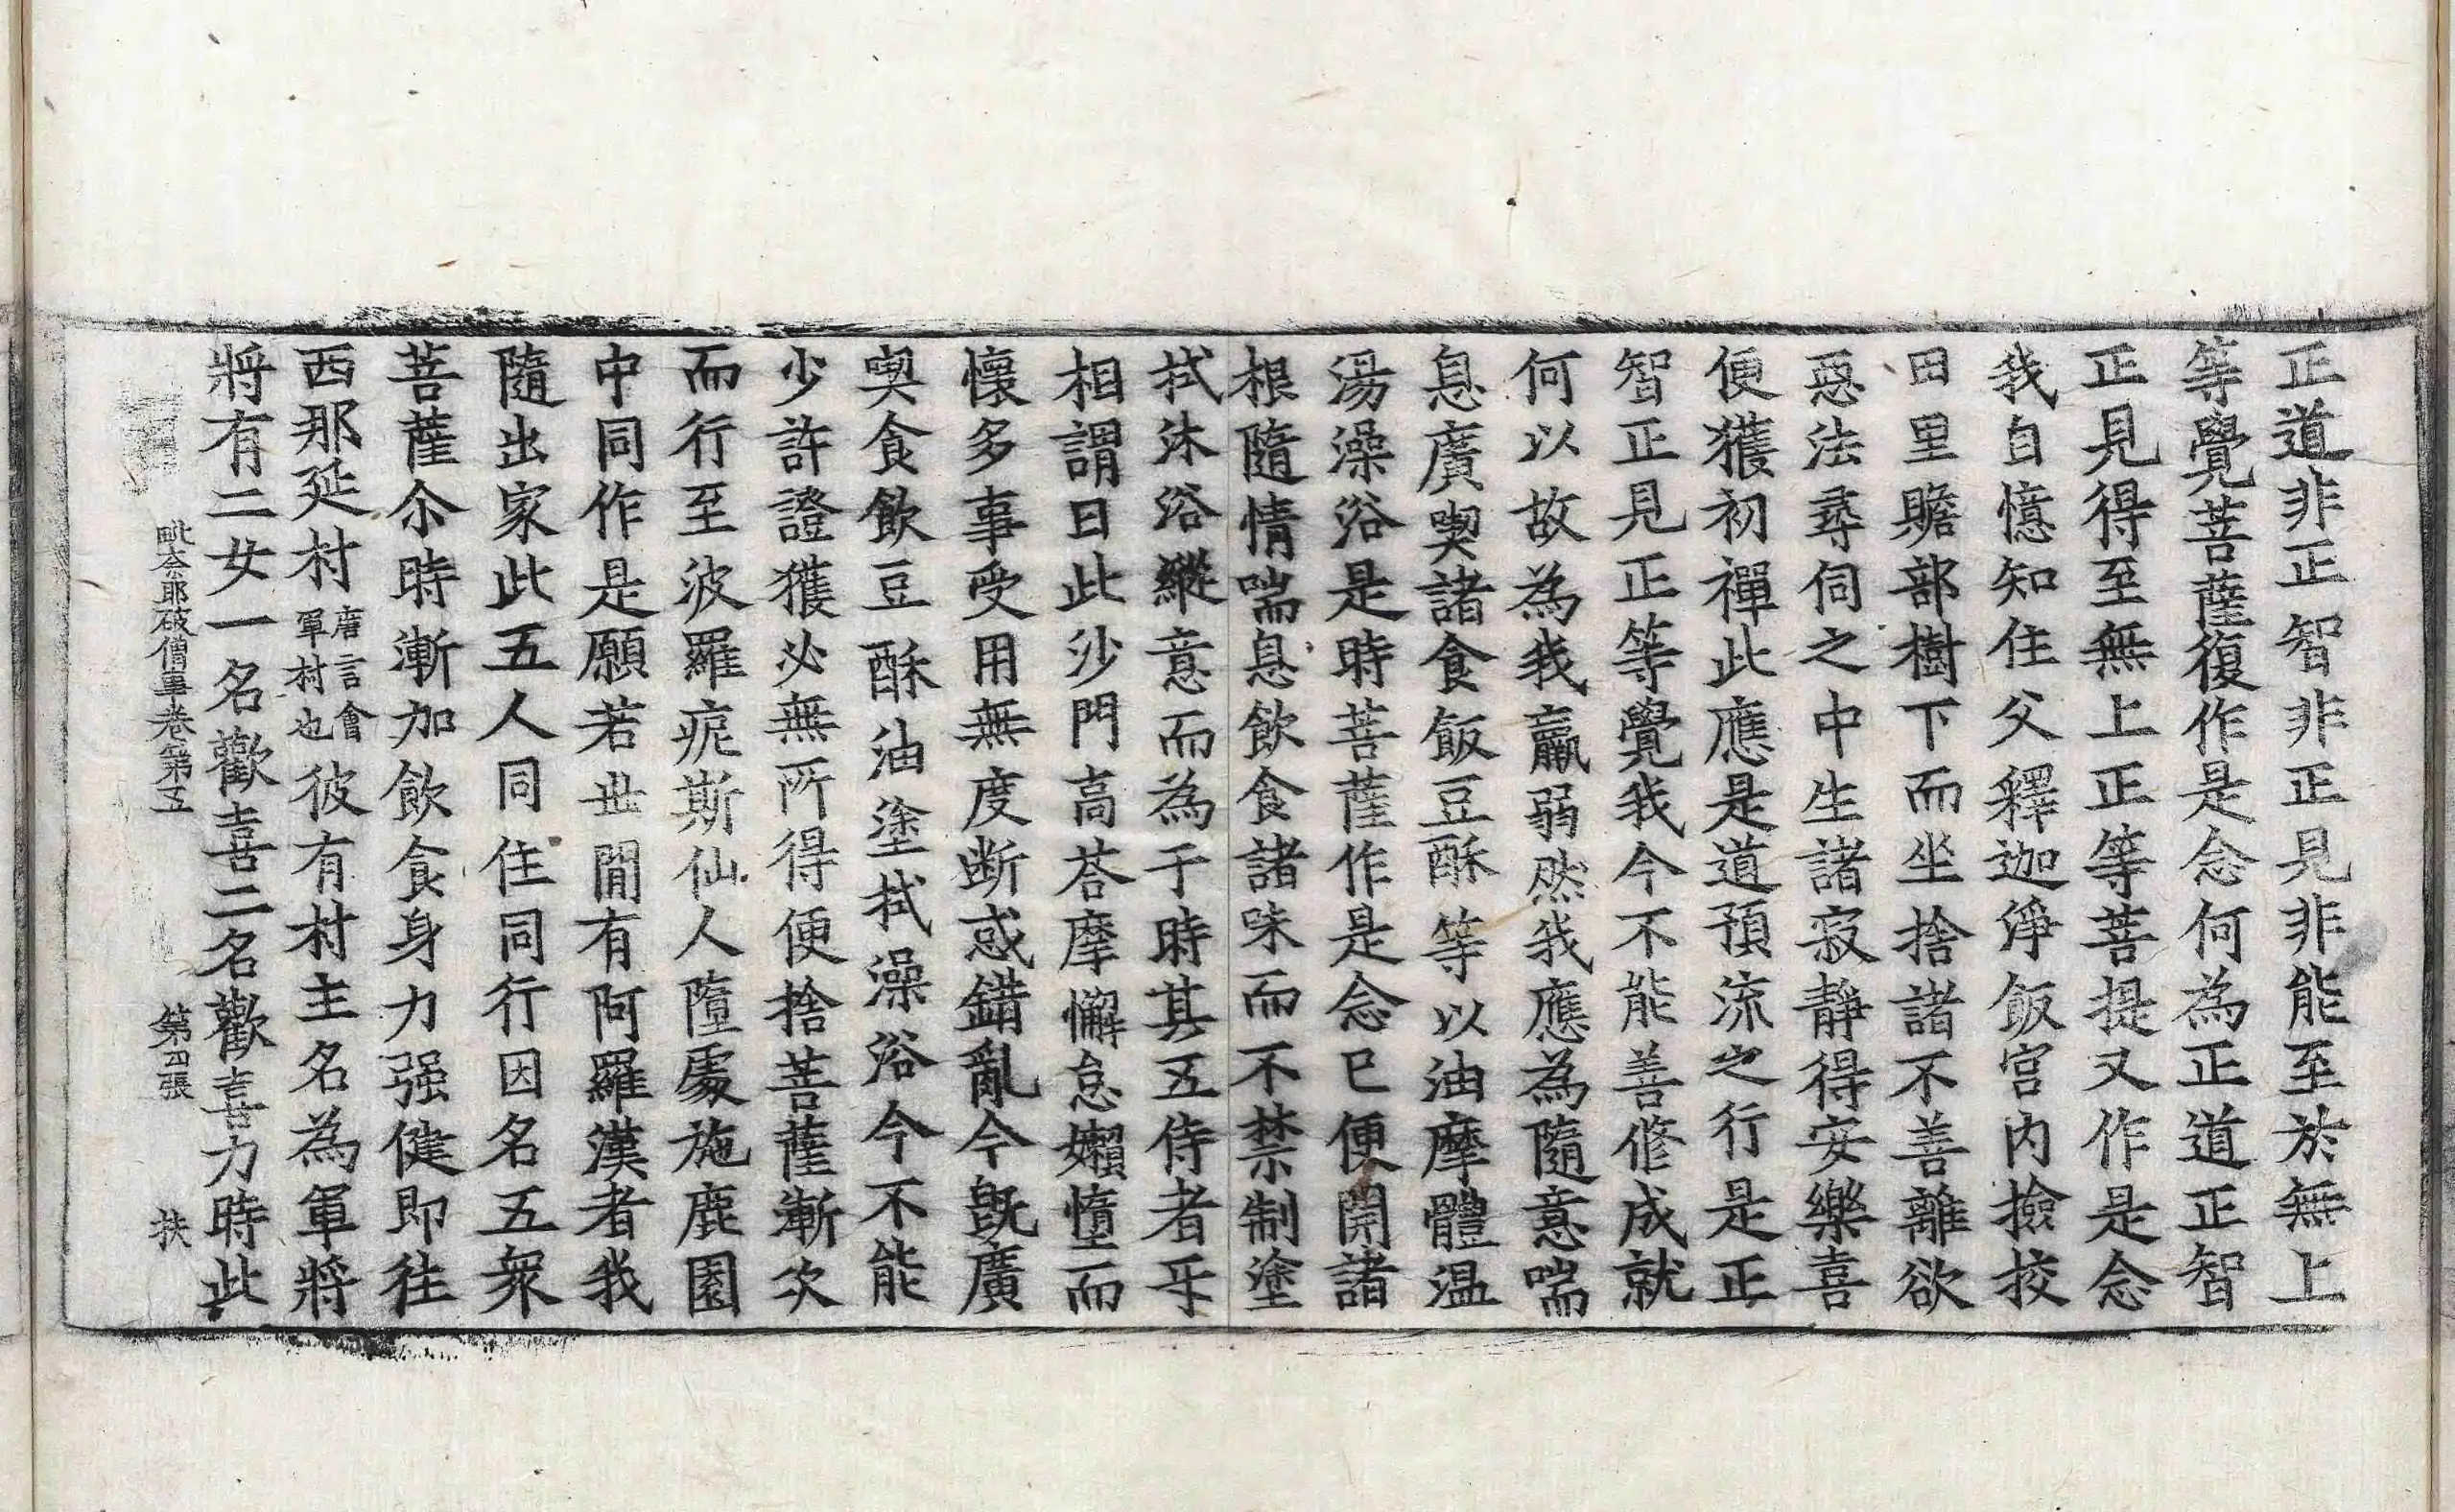 正道非正智非正見非能至於無上
等覺菩薩復作是念何為正道正智
正見得至無上正等菩提又作是念
我自憶知住父釋迦淨飯宮内撿挍
田里贍部樹下而坐捨諸不善離欲
惡法尋伺之中生諸寂靜得安樂喜
便獲初禪此應是道預流之行是正
智正見正等覺我今不能善修成就
何以故為我羸弱然我應為隨意喘
息廣喫諸食飯豆酥等以油摩體温
湯澡浴是時菩薩作是念已便開諸
根隨情喘息飲食諸味而不禁制塗
拭沐浴縱意而為于時其五侍者㸦
相謂曰此沙門髙荅摩懈怠嬾惰而
懷多事受用無度断惑錯亂今旣廣
喫食飲豆酥油塗拭澡浴今不能
少許證獲必無所得便捨菩薩漸次
而行至波羅痆斯仙人墮處施鹿園
中同作是願若世間有阿羅漢者我
隨出家此五人同住同行因名五衆
菩薩尒時漸加飲食身力强健即往
西那延村唐言會軍村也彼有村主名為軍將
將有二女一名歡喜二名歡喜力時此
毗奈耶破僧事卷第五 第四張 扶